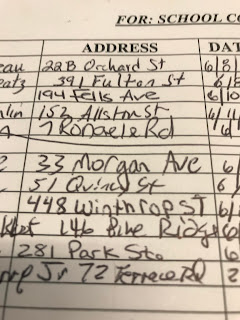 FOR: SCHOOL CO
ADDRESS DAT
eau 22B Orchard St 6/8/
eatz 391 Fulton St 6/
194 Fells Ave 6/10
nlin 152 Allston St 6/11
7 Ronaele Rd
33 Morgan Ave 6/
51 Quincy St 6/
448 Winthrop ST 6/
146 Pine Ridge 6/
281 Park St. 6
Jr 72 Terrace Rd 2